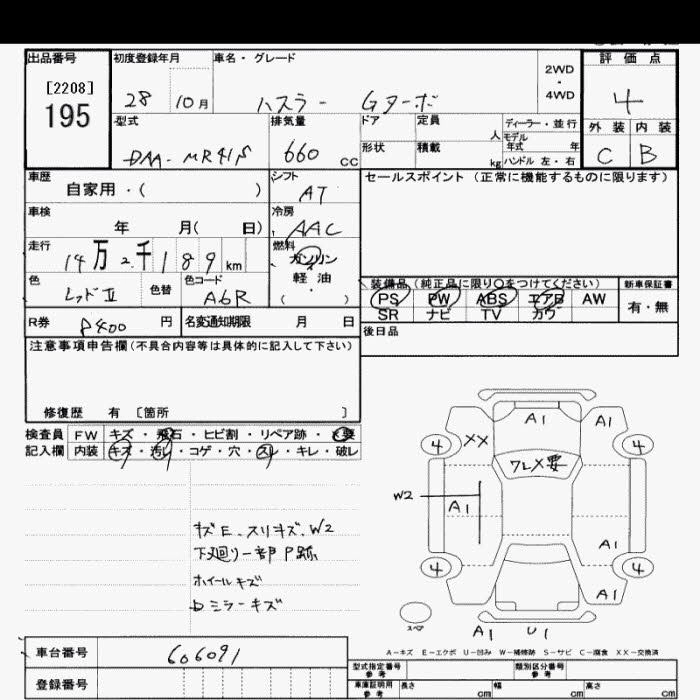 出品番号 初度登録年月 車名・グレード 2WD・4WD 評価点
[2208]
195
28 10月 ハスラー Gターボ 4
型式 排気量 ドア 定員 人 ディーラー・並行 外装 内装
モデル年式 年
DAA-MR41S 660 CC 形状 積載 kg ハンドル 左・右 C B
車歴 自家用・( ) シフト AT セールスポイント(正常に機能するものに限ります)
車検 年 月( 日) 冷房 AAC
走行 14万2千189km 燃料 ガソリン・軽油・( )
色 レッドII 色替 色コード A6R
装備品(純正品に限り○をつけてください) 新車保証書
PS PW ABS エアB AW 有・無
SR ナビ TV カワ
R券 8400円 名変通知期限 月 日 後日品
注意事項申告欄(不具合内容等は具体的に記入して下さい)
修復歴 有 [箇所 ]
検査員記入欄 FW キズ・飛石・ヒビ割・リペア跡・ 要
内装 キズ・汚レ・コゲ・穴・スレ・キレ・破レ
キズE.スリキズ.W2
下廻り一部P跡
ホイールキズ
Dミラーキズ
A1 A1
4 XX 4
ワレX要
W2
A1
A1
4 4
A1
スペア A1 U1
A-キズ E-エクボ U-凹み W-補修跡 S-サビ C-腐食 XX-交換済
車台番号 606091
登録番号
型式指定番号 参考 類別区分番号 参考
車庫証明用 参考 長さ cm 幅 cm 高さ cm